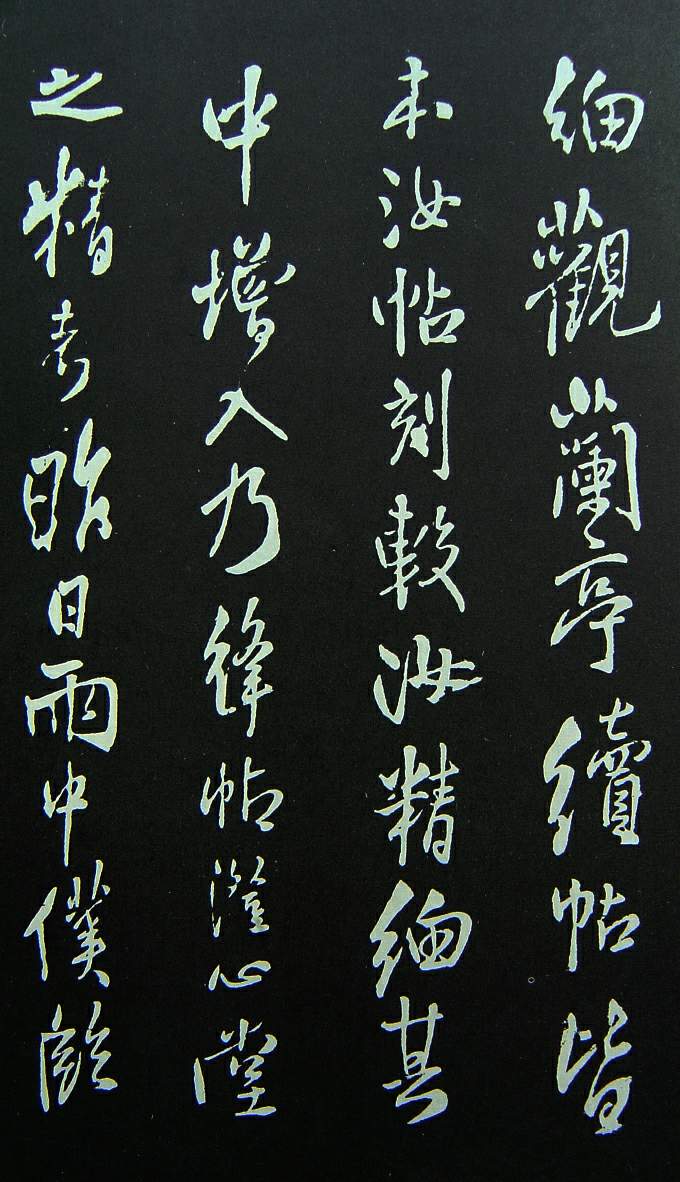 細觀蘭亭續帖皆
本汝帖刻較汝精細其
中增入乃絳帖澄心堂
之精者昨日雨中僕